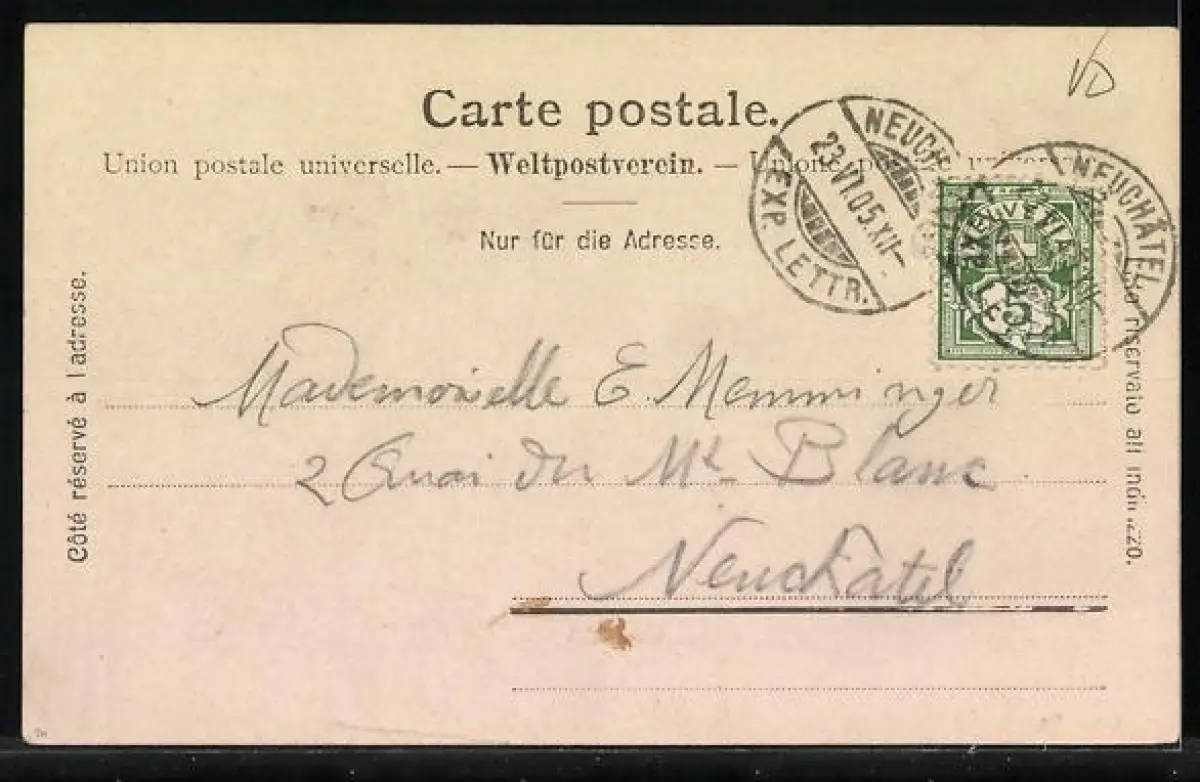 VD
Carte postale.
Union postale universelle. — Weltpostverein. —
Nur für die Adresse.
NEUCHÂTEL
23.VI.05.XII–
EXP. LETTR.
NEUCHÂTEL
HELVETIA
5
Côté réservé à l'adresse.
riservato all'indirizzo.
Mademoiselle E. Memminger
2 Quai du Mt. Blanc
Neuchâtel